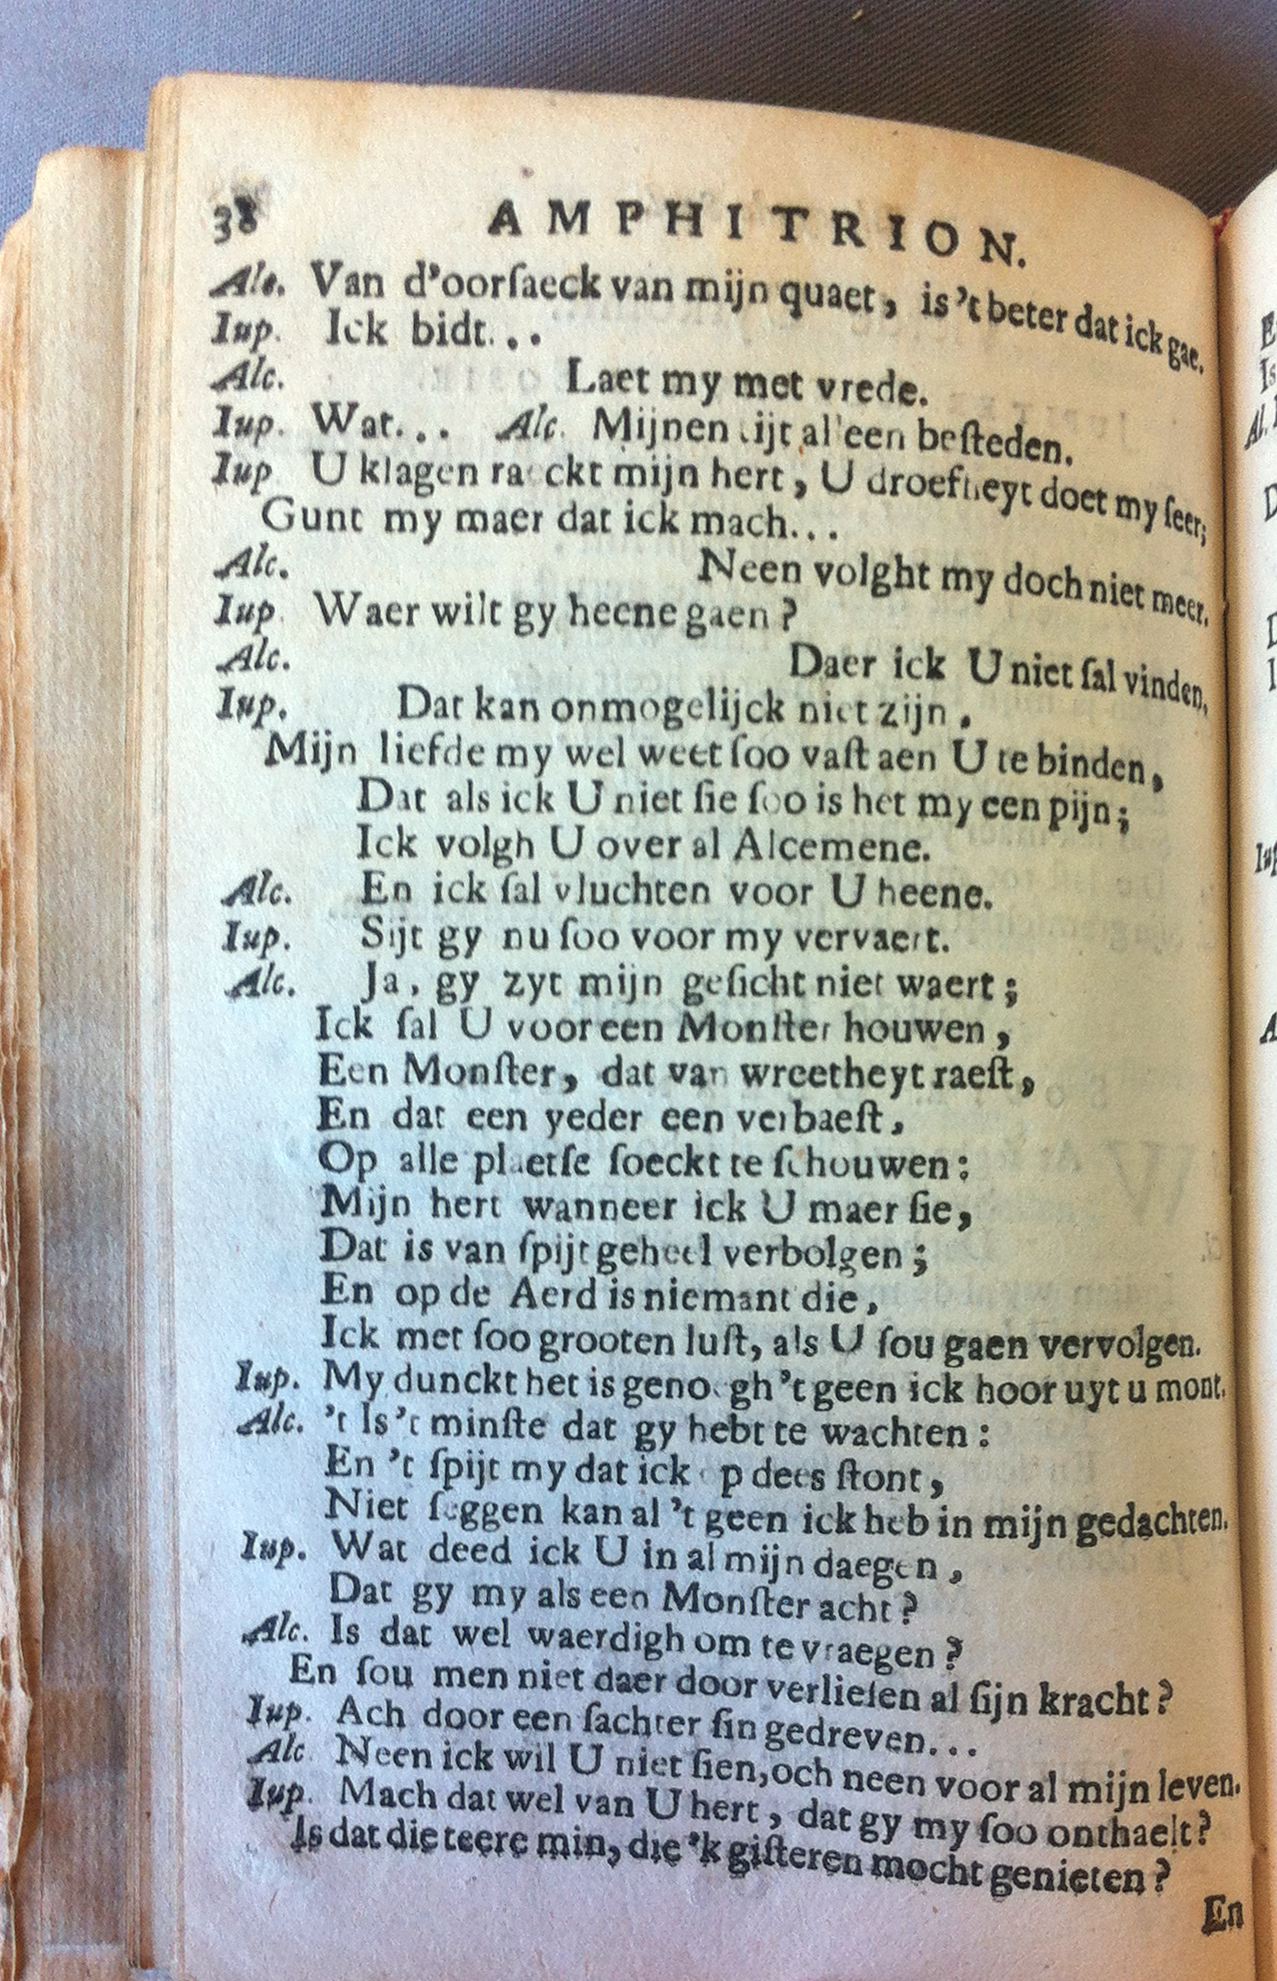 38 AMPHITRION.
Alc. Van d'oorſaeck van mijn quaet, is 't beter dat ick gae.
Iup. Ick bidt...
Alc. Laet my met vrede.
Iup. Wat... Alc. Mijnen tijt alleen beſteden.
Iup. U klagen raeckt mijn hert, U droefheyt doet my ſeer;
Gunt my maer dat ick mach...
Alc. Neen volght my doch niet meer.
Iup. Waer wilt gy heene gaen?
Alc. Daer ick U niet ſal vinden,
Iup. Dat kan onmogelijck niet zijn.
Mijn liefde my wel weet ſoo vaſt aen U te binden,
Dat als ick U niet ſie ſoo is het my een pijn;
Ick volgh U over al Alcemene.
Alc. En ick ſal vluchten voor U heene.
Iup. Sijt gy nu ſoo voor my vervaert.
Alc. Ja, gy zyt mijn geſicht niet waert;
Ick ſal U voor een Monſter houwen,
Een Monſter, dat van wreetheyt raeſt,
En dat een yeder een verbaeſt,
Op alle plaetſe ſoeckt te ſchouwen:
Mijn hert wanneer ick U maer ſie,
Dat is van ſpijt geheel verbolgen;
En op de Aerd is niemant die,
Ick met ſoo grooten luſt, als U ſou gaen vervolgen.
Iup. My dunckt het is genoegh 't geen ick hoor uyt u mont.
Alc. 't Is 't minſte dat gy hebt te wachten:
En 't ſpijt my dat ick op dees ſtont,
Niet ſeggen kan al 't geen ick heb in mijn gedachten.
Iup. Wat deed ick U in al mijn daegen,
Dat gy my als een Monſter acht?
Alc. Is dat wel waerdigh om te vraegen?
En ſou men niet daer door verlieſen al ſijn kracht?
Iup. Ach door een ſachter ſin gedreven...
Alc. Neen ick wil U niet ſien, och neen voor al mijn leven.
Iup. Mach dat wel van U hert, dat gy my ſoo onthaelt?
Is dat die teere min, die 'k giſteren mocht genieten?
En